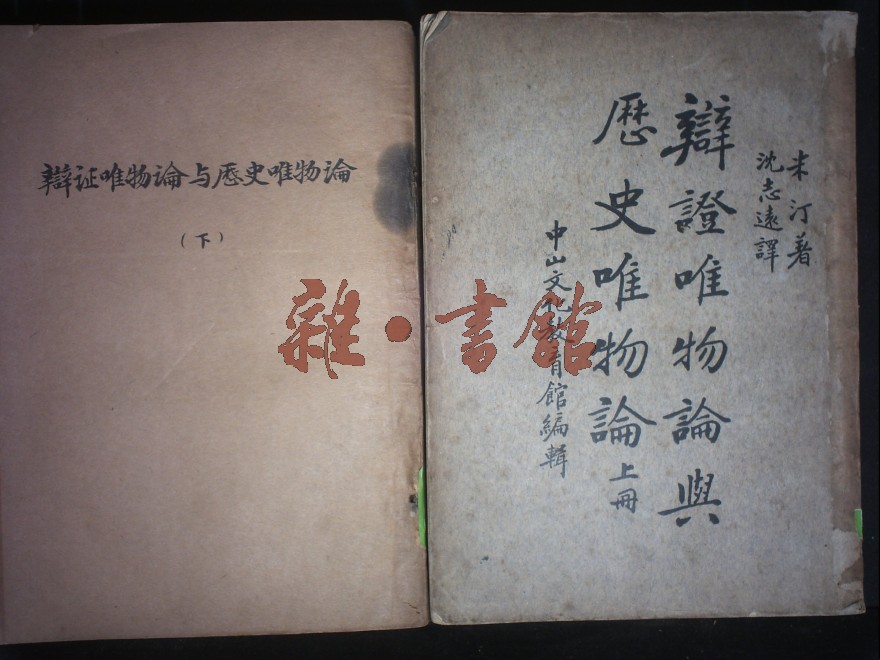 辯证唯物論与厯史唯物論
（下）
米汀著
沈志遠譯
辯證唯物論與
歷史唯物論上冊
中山文化教育館編輯
雜·書館